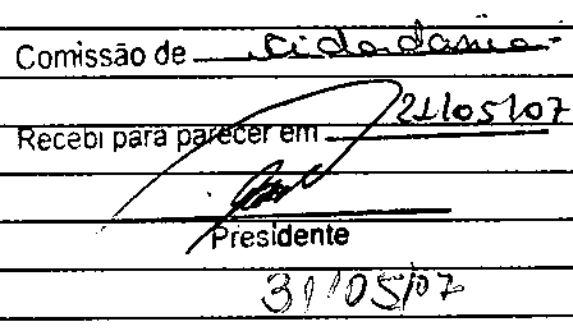 Comissão de cidadania
21/05/07
Recebi para parecer em
Presidente
31/05/07